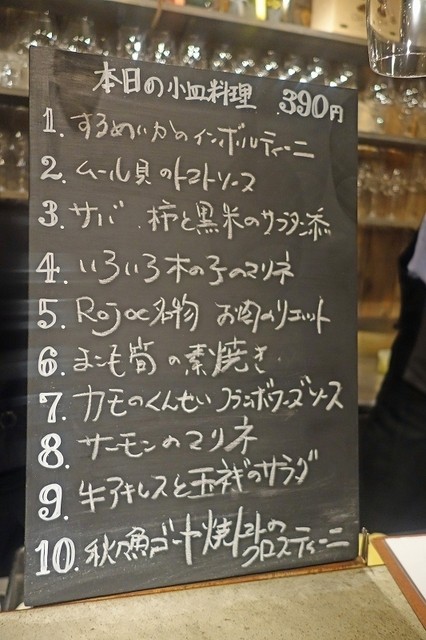 本日の小皿料理 390円
1. するめいかのインボルティーニ
2. ムール貝のトマトソース
3. サバ 柿と黒米のサラダ添
4. いろいろ木の子のマリネ
5. Rojoc名物 お肉のリエット
6. まこも筍の素焼き
7. カモのくんせい フランボワーズソース
8. サーモンのマリネ
9. 牛アキレスと玉ねぎのサラダ
10. 秋の魚ゴート焼トマトの
クロスティーニ